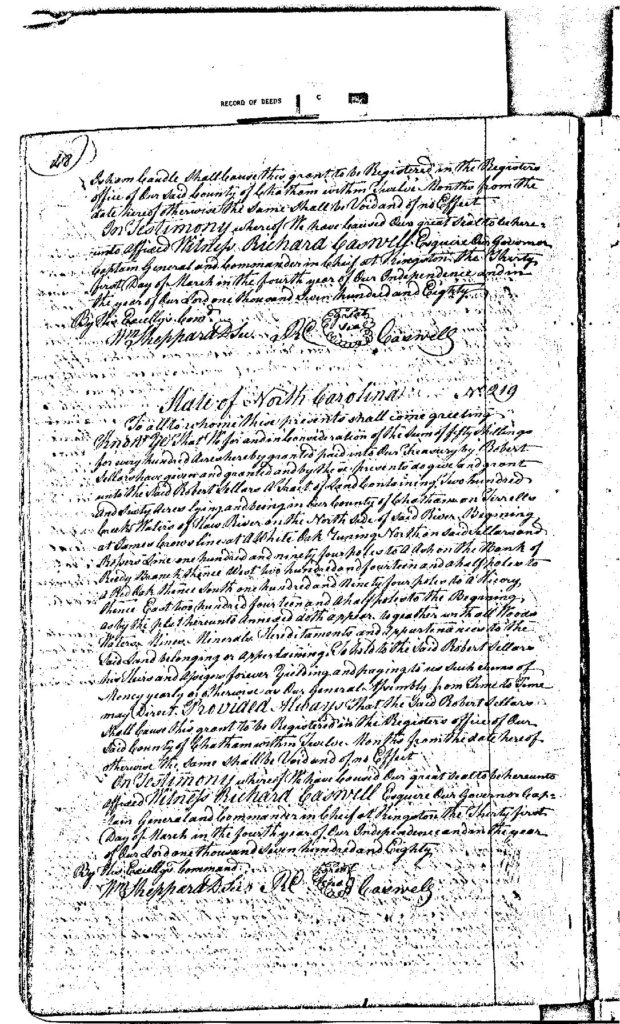 RECORD OF DEEDS C
218
Isham Caudle Shall Cause this grant to be Registered in the Registers
office of Our Said County of Chatham within Twelve Months from the
date hereof otherwise the Same Shall be Void and of no Effect
In Testimony whereof We have Caused Our great seal to be here-
unto affixed Witness Richard Caswell Esquire Our Governor
Captain General and Commander in Chief at Kingston the Thirty
first Day of March in the fourth year of Our Independence and in
the year of Our Lord one thousand Seven hundred and Eighty
By His Excellys Comd
Wm Sheppard D Sec RC Great Seal Caswell
State of North Carolina No 219
To all to whome these presents shall come greeting
Know Ye That We for and in Consideration of the Sum of fifty Shillings
for every hundred Acres hereby granted paid into Our Treasury by Robert
Sellars have given and granted and by these presents do give and grant
unto the Said Robert Sellars A Tract of Land Containing Two hundred
and Sixty Acres lying and being in Our County of Chatham on Terrells
Creek Waters of Haw River on the North Side of Said River Begining
at James Crows line at A White Oak Runing North on Said Sellars and
Ropers Line one hundred and ninety four poles to A Ash on the Bank of
Reedy Branch thence West two hundred and fourteen and a half poles to
a Red Oak thence South one hundred and Ninety four poles to A Hicory
thence East two hundred fourteen and A half poles to the Begining
as by the plot hereunto Annexed doth appear together with all Woods
Waters Mines Minerals Hereditaments and Appurtenances to the
Said Land belonging or Appertaining To hold to the Said Robert Sellars
his Heirs and Assigns forever Yielding and paying to us Such Sums of
Money yearly or otherwise as Our General Assembly from Time to Time
may Direct. Provided Always That the Said Robert Sellars
Shall Cause this grant to be Registered in the Registers office of Our
Said County of Chatham within Twelve Months from the date hereof
otherwise the Same Shall be Void and of no Effect
In Testimony whereof We have Caused Our great seal to be hereunto
affixed Witness Richard Caswell Esquire Our Governor Cap-
tain General and Commander in Chief at Kingston the Thirty first
Day of March in the fourth year of Our Independence and in the year
of Our Lord one thousand Seven hundred and Eighty
By His Excellys Command
Wm Sheppard D Sec RC Great Seal Caswell